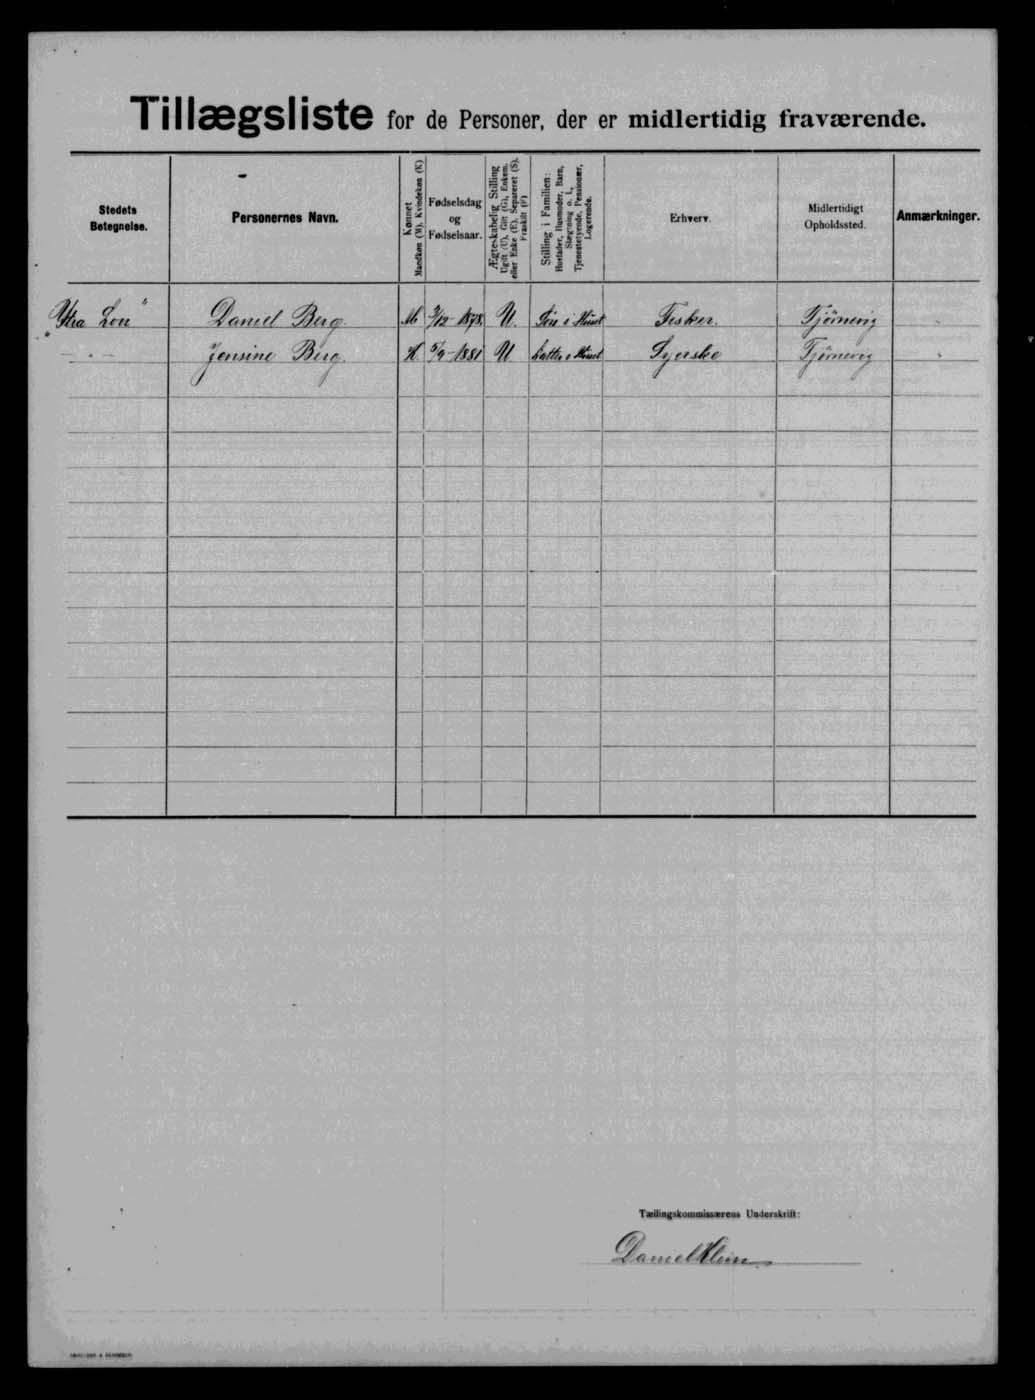 Tillægsliste for de Personer, der er midlertidig fraværende.
Stedets Betegnelse.
Personernes Navn.
Kønnet
Mandkøn (M), Kvindekøn (K)
Fødselsdag
og
Fødselsaar.
Ægteskabelig Stilling
Ugift (U), Gift (G), Enkem.
eller Enke (E), Separeret (S).
Fraskilt (F)
Stilling i Familien:
Husfader, Husmoder, Barn,
Slægtning o. l.,
Tjenestetyende, Pensionær,
Logerende.
Erhverv.
Midlertidigt
Opholdssted.
Anmærkninger.
"Ytra Lon" Daniel Berg. M /12-1878. U. Søn i Huset Fisker. Tjørnevig
" - " - Jensine Berg. K. 5/9-1881 U Datter i Huset Syerske Tjørnevig
Tællingskommissærens Underskrift:
Daniel Klein